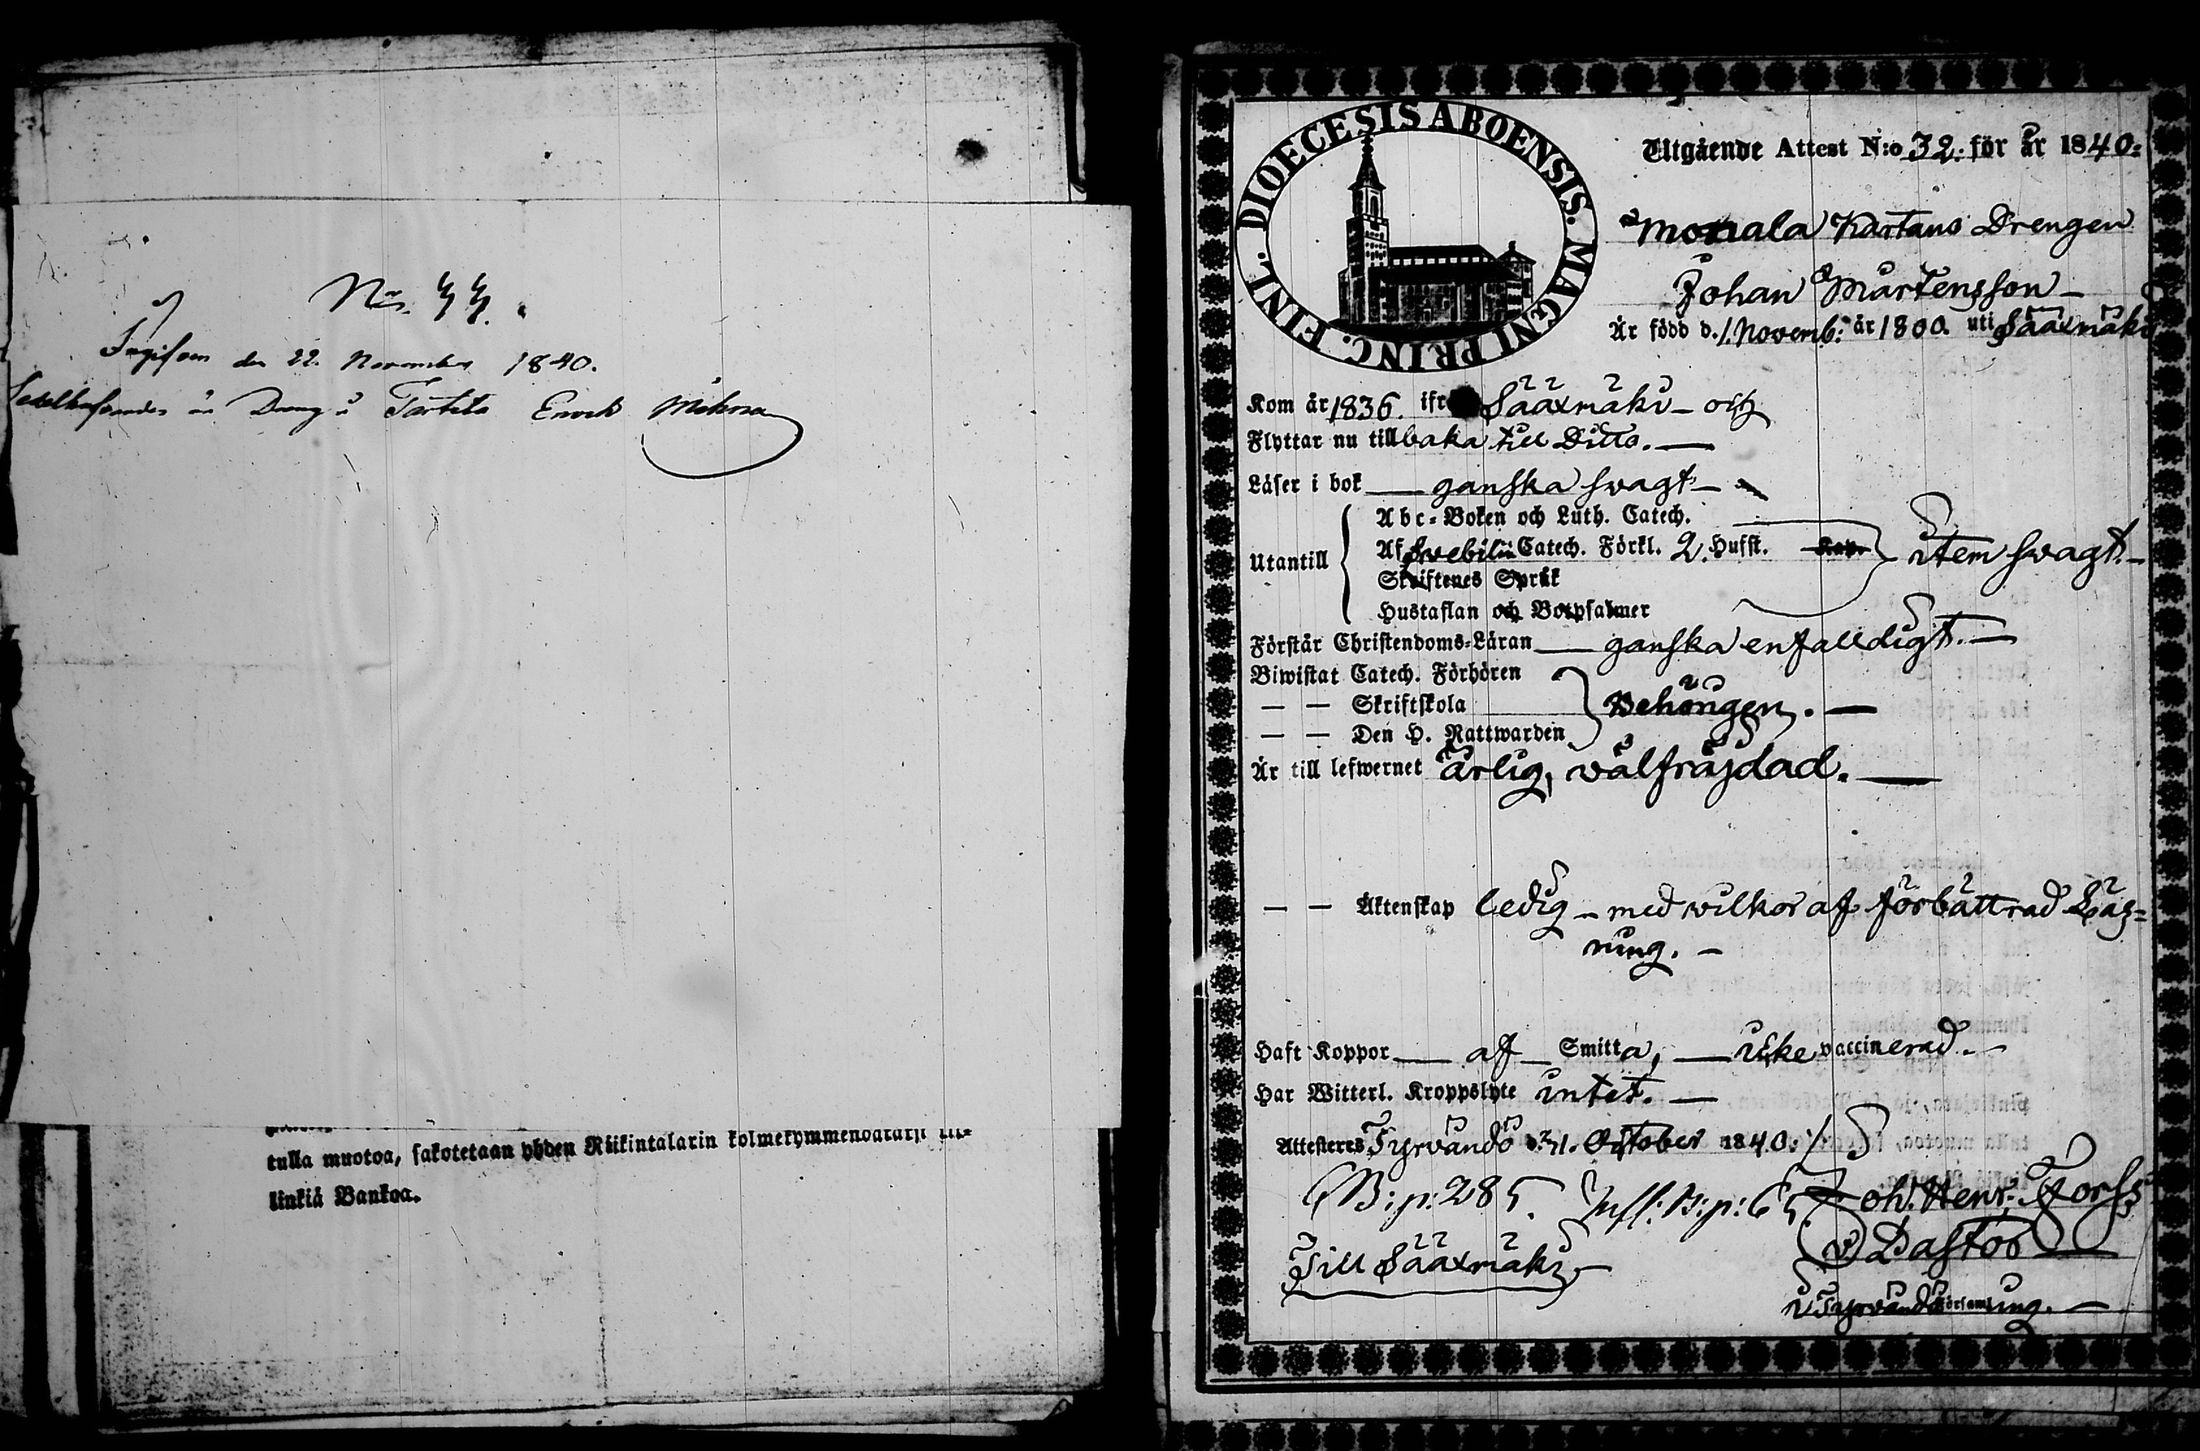 No. 44.
Ingifven den 22. November 1840.
är Dräng i Enock
tulla muotoa, sakotetaan yhden Riikintalarin kolmekymmendäkaxi
linkiä Bankoa.
DIOECESIS ABOENSIS. MAGNI PRINC. FINL.
Utgående Attest N:o 32. för år 1840.
Moriala Kartano Drengen
Johan Mårtensson
Är född d. 1. Novemb: år 1800. uti Sääxmäki
Kom år 1836. ifr Sääxmäki – och
Flyttar nu till baka till Ditto. —
Läser i bok — ganska swagt —
Abc-Boken och Luth. Catech.
Utantill Af Svebilii Catech. Förkl. 2. Hufst. Kap. item swagt. –
Skriftenes Språk
Hustaflan och Botpsalmer
Förstår Christendoms-Läran — ganska enfalldigt. —
Biwistat Catech. Förhören
— — Skriftskola Behörigen. —
— — Den H. Nattwarden
Är till lefwernet ärlig, wälfräjdad. —
— — Äktenskap ledig – med wilkor af förbättrad Läs=
ning. –
Haft Koppor — af Smitta, — icke vaccinerad. –
Har Witterl. Kroppslyte intet. —
Attesteres Tyrvändö d. 31. October 1840.
B: p: 285. Infl: B: p: 65 Joh. Henr. Forss
v. Pastor
Till Sääxmäki –
i Tyrvändö Församling. –